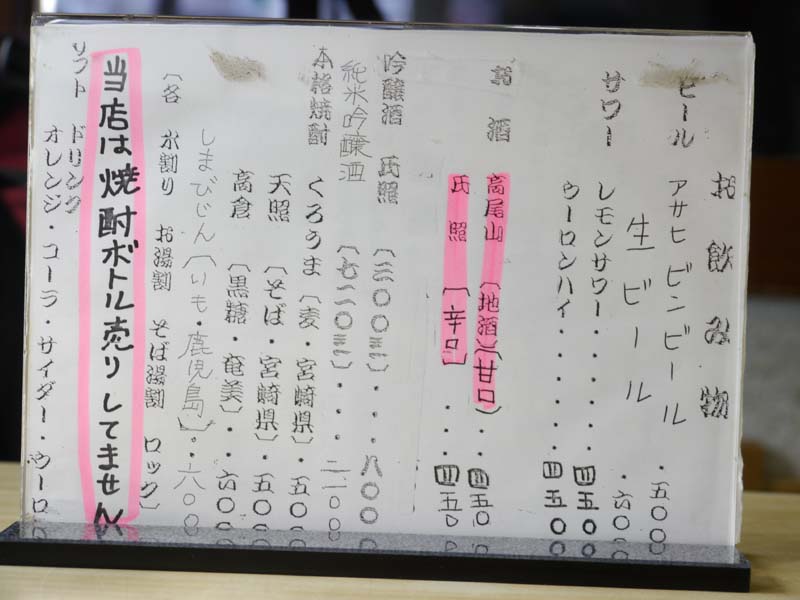 お飲み物
ビール
アサヒ ビンビール・五〇〇
生ビール・六〇〇
サワー
レモンサワー・・・・・四五〇
ウーロンハイ・・・・・四五〇
お酒
高尾山〔地酒〕〔甘口〕・・四五〇
氏照〔辛口〕・・・四五〇
吟醸酒 氏照〔三〇〇ミリ〕・・・八〇〇
純米吟醸酒〔七二〇ミリ〕・・・二一〇〇
本格焼酎
くろうま〔麦・宮崎県〕・・五〇〇
天照〔そば・宮崎県〕・・五〇〇
高倉〔黒糖・奄美〕・・六〇〇
しまびじん〔いも・鹿児島〕・・六〇〇
〔各 水割り お湯割 そば湯割 ロック〕
当店は焼酎ボトル売りしてません
ソフトドリンク
オレンジ・コーラ・サイダー・ウーロ